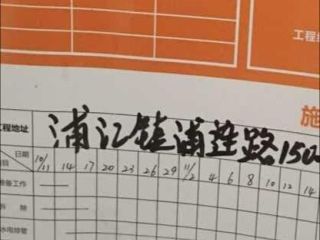 工程
施
工程地址 浦江镇浦锦路150
日期 10/11 14 17 20 23 26 29 11/2 4 6 8 10 12 14
项目
准备工作
拆除
水电排管